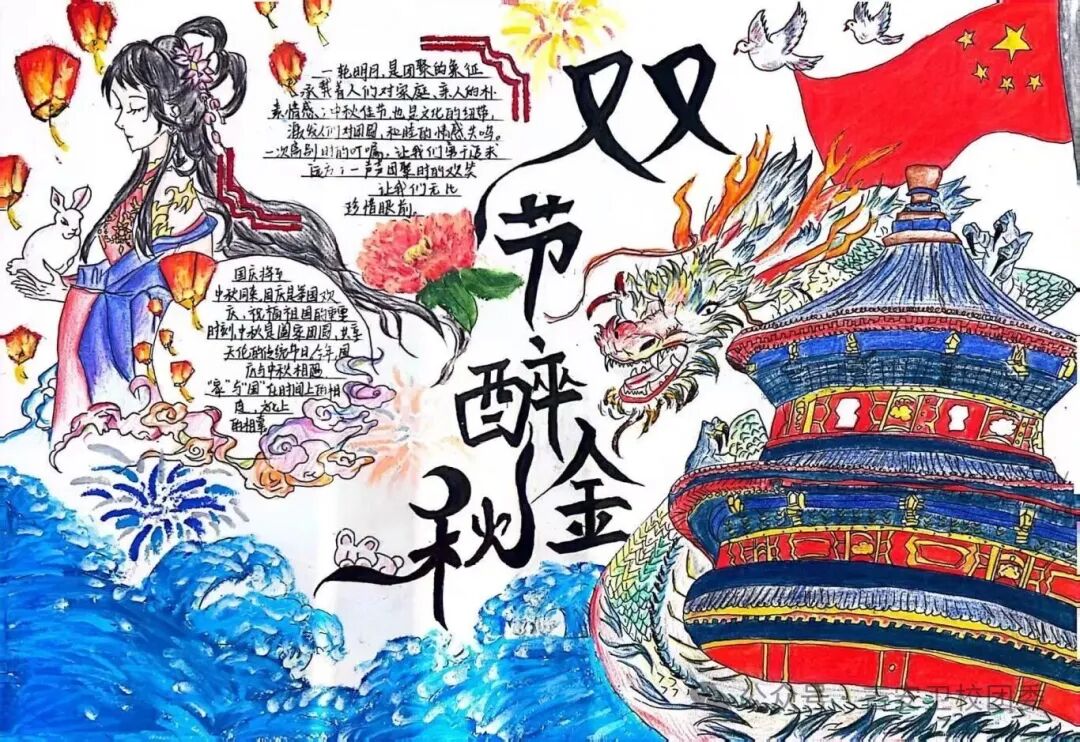 双
节
醉
金
秋
一轮明月,是团聚的象征
承载着人们对家庭、亲人的朴
素情感;中秋佳节,也是文化的纽带,
激发人们对团圆,和睦的情感共鸣。
一次离别时的叮嘱,让我们勇于追求
远方;一声声团聚时的欢笑
让我们无比
珍惜眼前。
国庆将至
中秋同来,国庆是举国欢
庆、祝福祖国的重要
时刻,中秋是阖家团圆,共享
天伦的传统节日,今年,国
庆与中秋相遇
"家"与"国"在时间上的相
遇,
的相拿
公众号
卫校团委